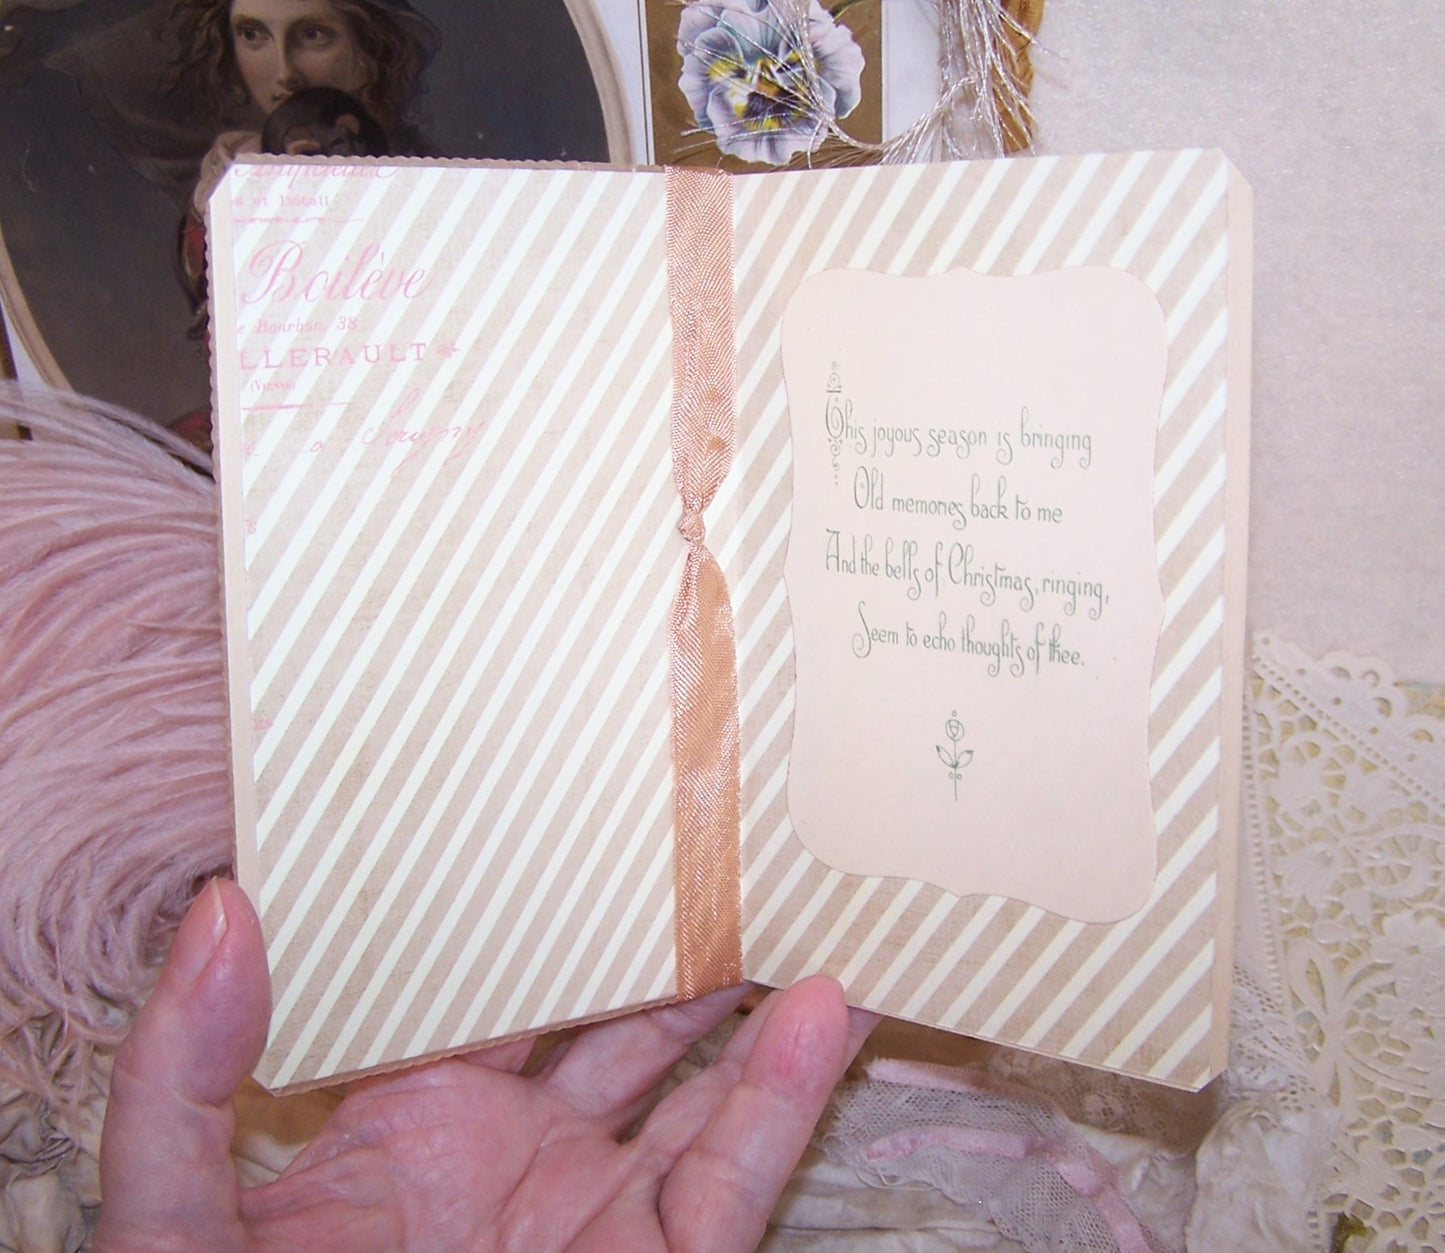 et Détail
Boilève
Bourbon, 38
LLERAULT
(Vienne)
This joyous season is bringing
Old memories back to me
And the bells of Christmas, ringing,
Seem to echo thoughts of thee.